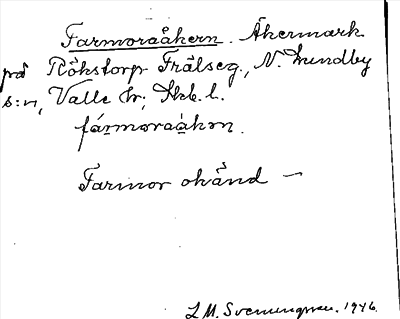 Farmoraåkern. Åkermark
på Rökstorp Frälseg., N. Lundby
s:n, Valle hr; Skb. l.
fármoraàkən.
Farmor okänd –
L M. Svenungsson. 1946.